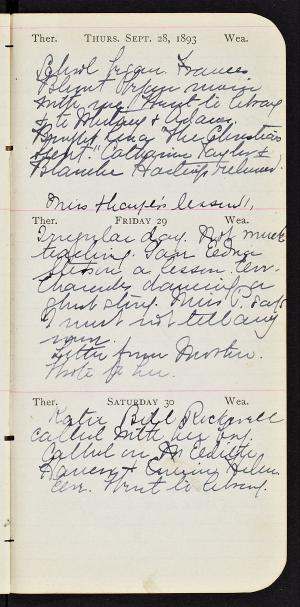 Ther. THURS. SEPT. 28, 1893 Wea.
School began. Frances
Blunt began music
with me. Went to library
& to Whitney & Adams.
Bought Lucy "The Christian's
." Catharine Taylor &
Blanche Hastings returned.
Miss Thayer's lesson
Ther. FRIDAY 29 Wea.
Irregular day. Not much
teaching. Gave Edna
a lesson. Eve.
Charades, dancing, a
ghost story. Miss P. says
I must not tell any
more.
Letter from Mother.
Wrote to her.
Ther. SATURDAY 30 Wea.
Katie Bill Rockwell
called with her boy.
Called on Edith
Nancy & Helen
eve. Went to library.